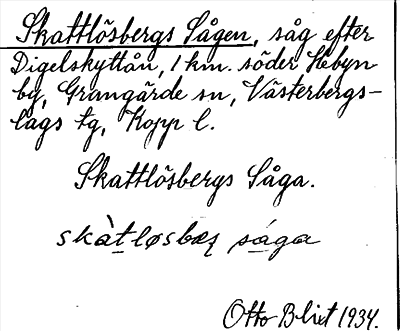 Skattlösbergs Sågen, såg efter
Digelskyttån, 1 km. söder Hebyn
by, Grangärde sn, Västerbergs-
lags tg, Kopp l.
Skattlösbergs Såga.
skàt̲løsbæʂ sága
Otto Blixt 1934.